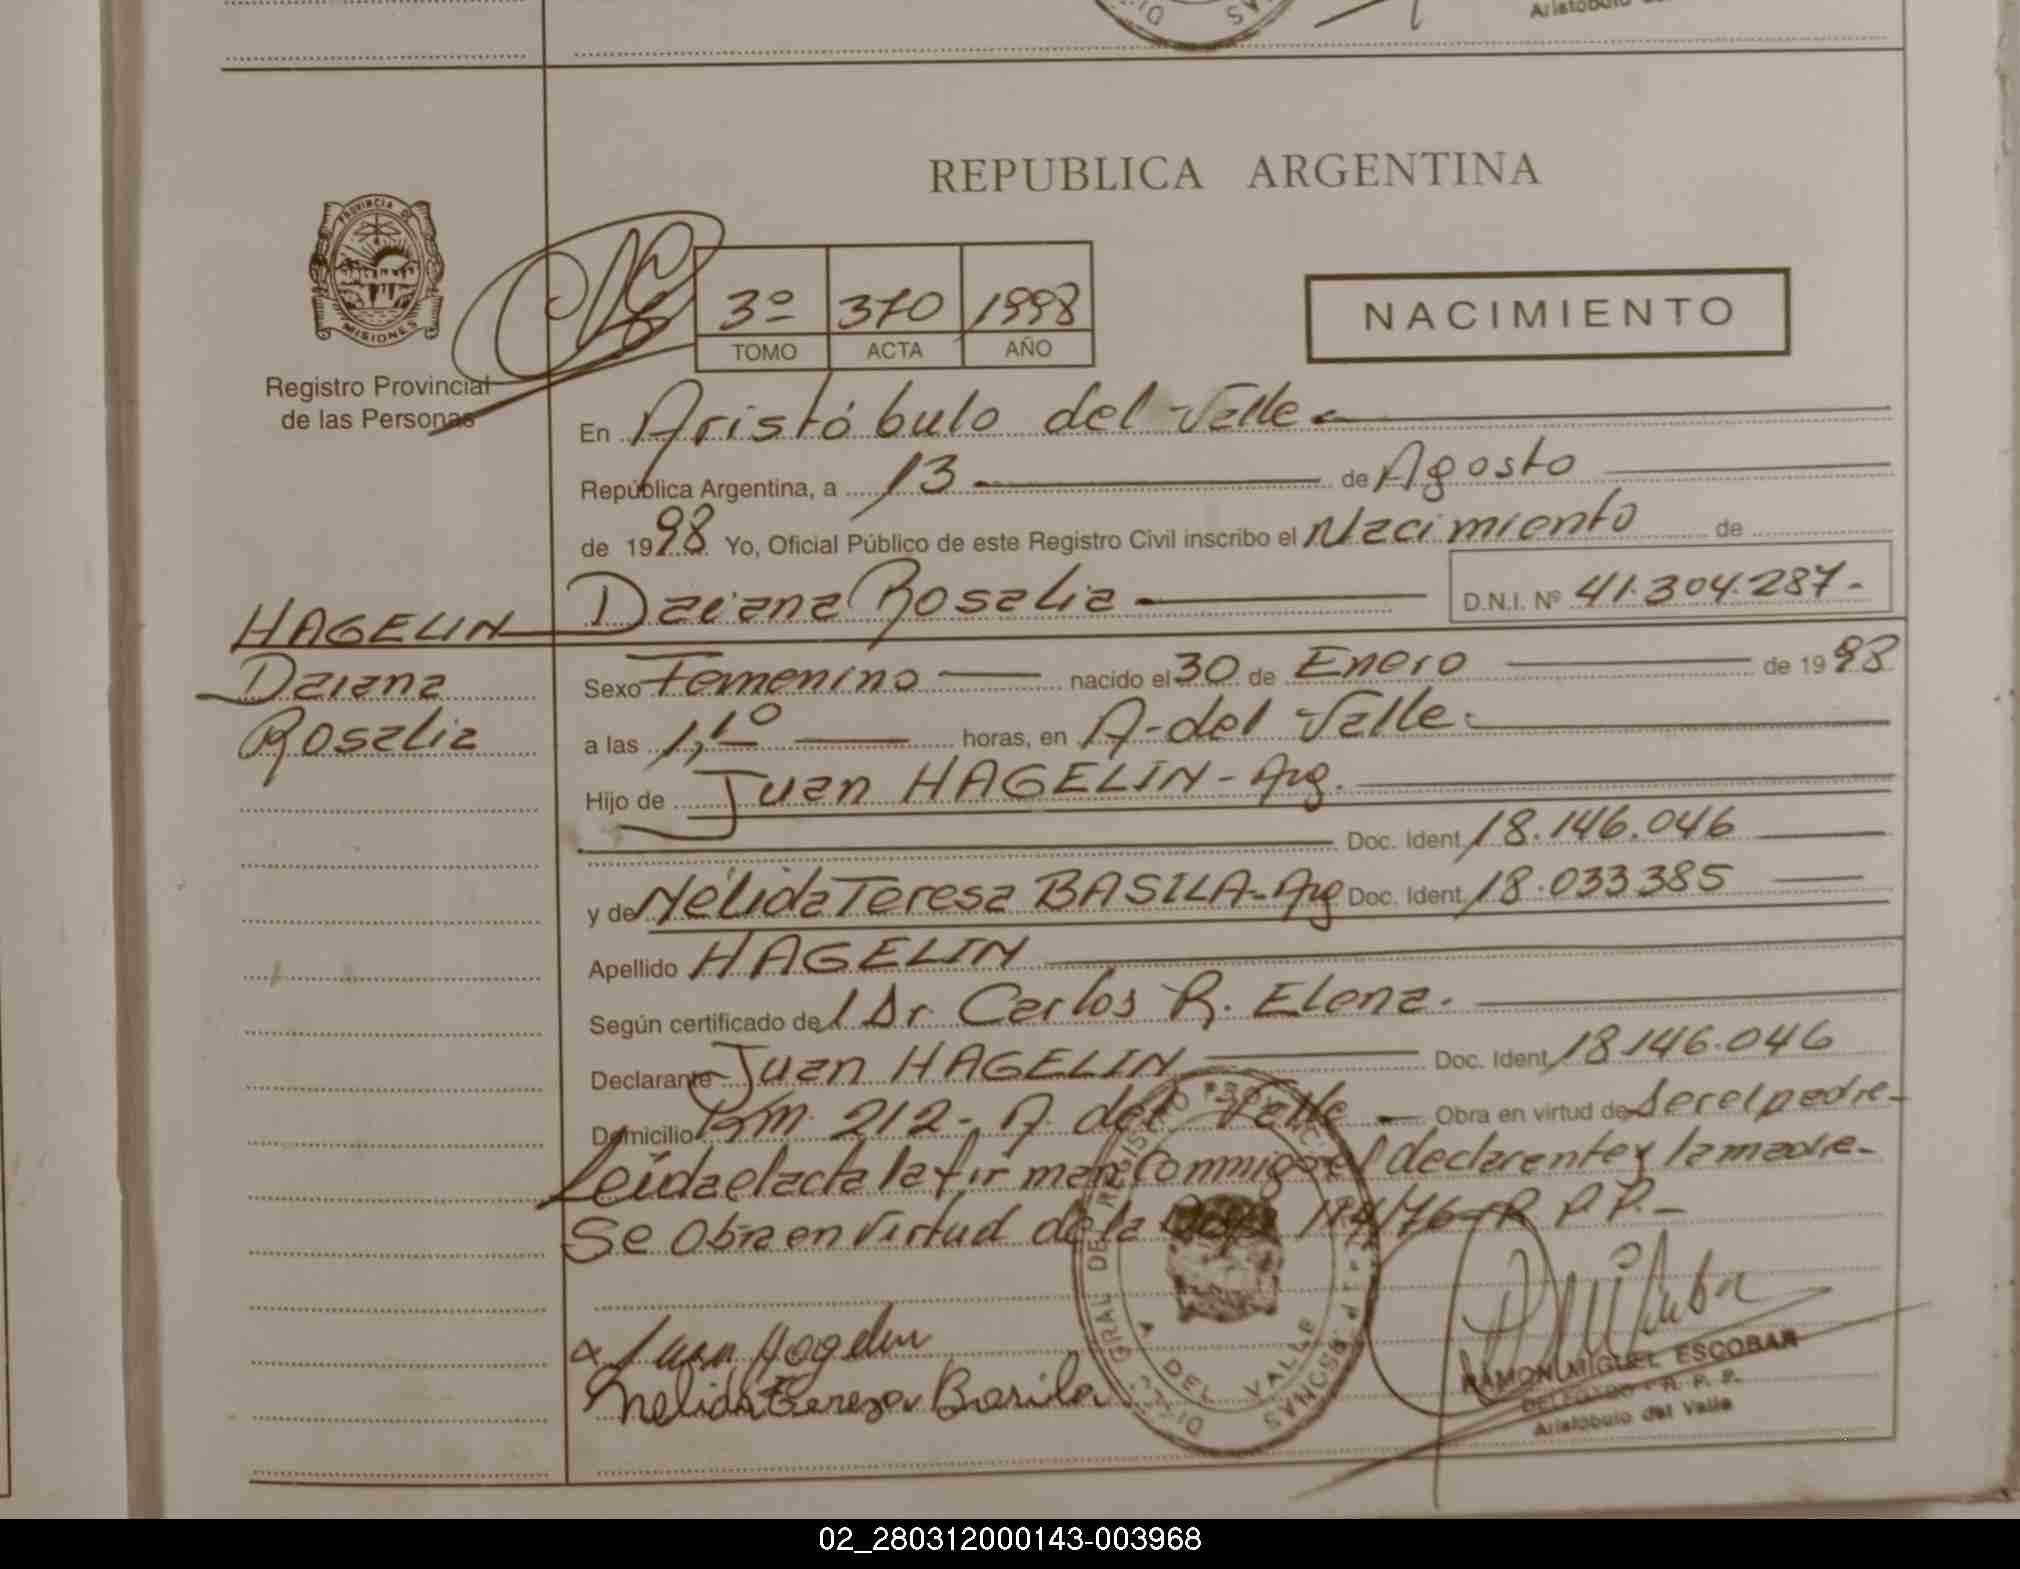 Aristóbulo
REPUBLICA ARGENTINA
PROVINCIA DE
MISIONES
Registro Provincial
de las Personas
3º 370 1998
TOMO ACTA AÑO
NACIMIENTO
En Aristóbulo del Valle
República Argentina, a 13 de Agosto
de 1998 Yo, Oficial Público de este Registro Civil inscribo el Nacimiento de
Daiana Rosalia D.N.I. Nº 41.304.287-
HAGELIN
Daiana
Rosalia
Sexo Femenino nacido el 30 de Enero de 1998
a las horas, en A. del Valle.
Hijo de Juan HAGELIN - Arg.
Doc. Ident. 18.146.046
y de Nélida Teresa BASILA - Arg Doc. Ident. 18.033385
Apellido HAGELIN
Según certificado del Dr. Carlos R. Elena.
Declarante Juan HAGELIN Doc. Ident. 18146.046
Domicilio Km. 212 - A. del Valle - Obra en virtud de ser el padre-
Leída el acta la firman conmigo el declarente y la madre-
Se obra en virtud de la /76 - R P.P.-
Juan Hagelin
Nelida Tereza Basila
A DEL VALLE
RAMON MIGUEL ESCOBAR
DELEGADO - R. P. P.
Aristóbulo del Valle
02_280312000143-003968